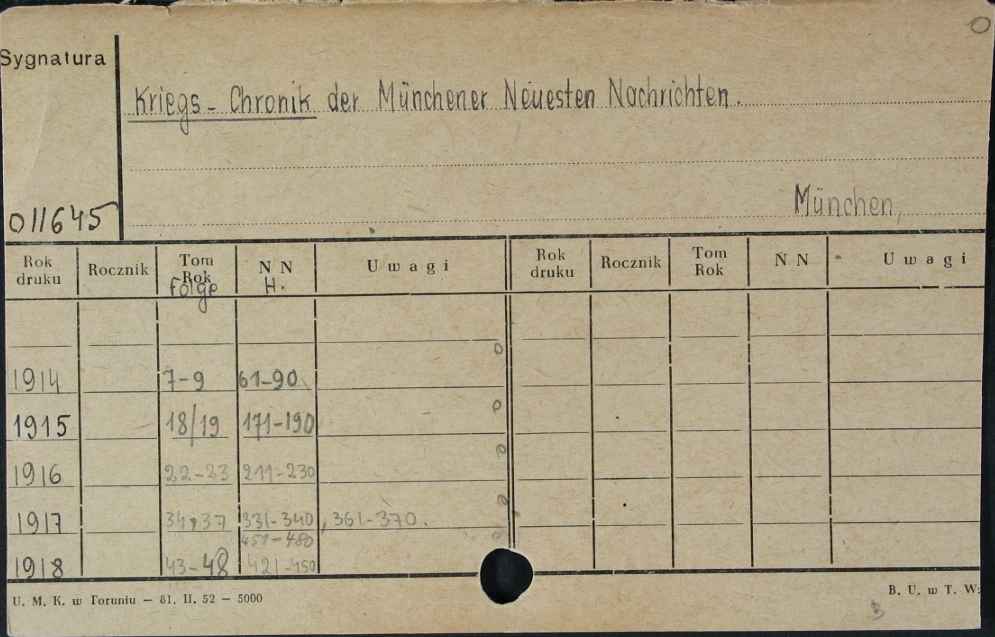 O
Sygnatura
Kriegs-Chronik der Münchener Neuesten Nachrichten.
München,
011645
Rok druku Rocznik Tom Rok Folge N N H. Uwagi Rok druku Rocznik Tom Rok N N Uwagi
1914 7-9 61-90
1915 18/19 171-190
1916 22-23 211-230
1917 34,37 331-340, 361-370.
451-480
1918 43-48 421-450
U. M. K. w Toruniu — 81. II. 52 — 5000
B. U. w T. W: